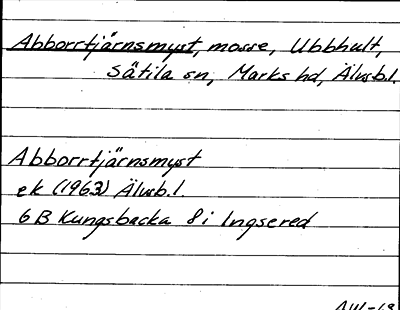 Abborrtjärnsmyst, mosse, Ubbhult,
Sätila sn, Marks hd, Älvsb.l.
Abborrtjärnsmyst
ek (1963) Älvsb.l.
6B Kungsbacka 8i Ingsered